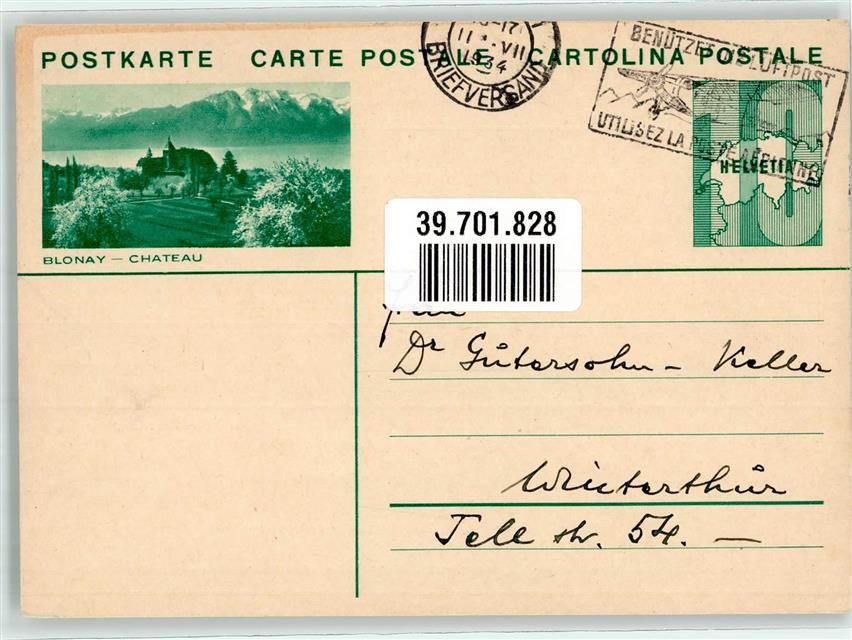 POSTKARTE CARTE POSTALE CARTOLINA POSTALE
11. VII
1934
BRIEFVERSAND
BENÜTZET DIE LUFTPOST
UTILISEZ LA POSTE AERIENNE
10
HELVETIA
BLONAY — CHATEAU
39.701.828
Frau
Dr Gütersohn - Keller
Winterthur
Tell str. 54. —